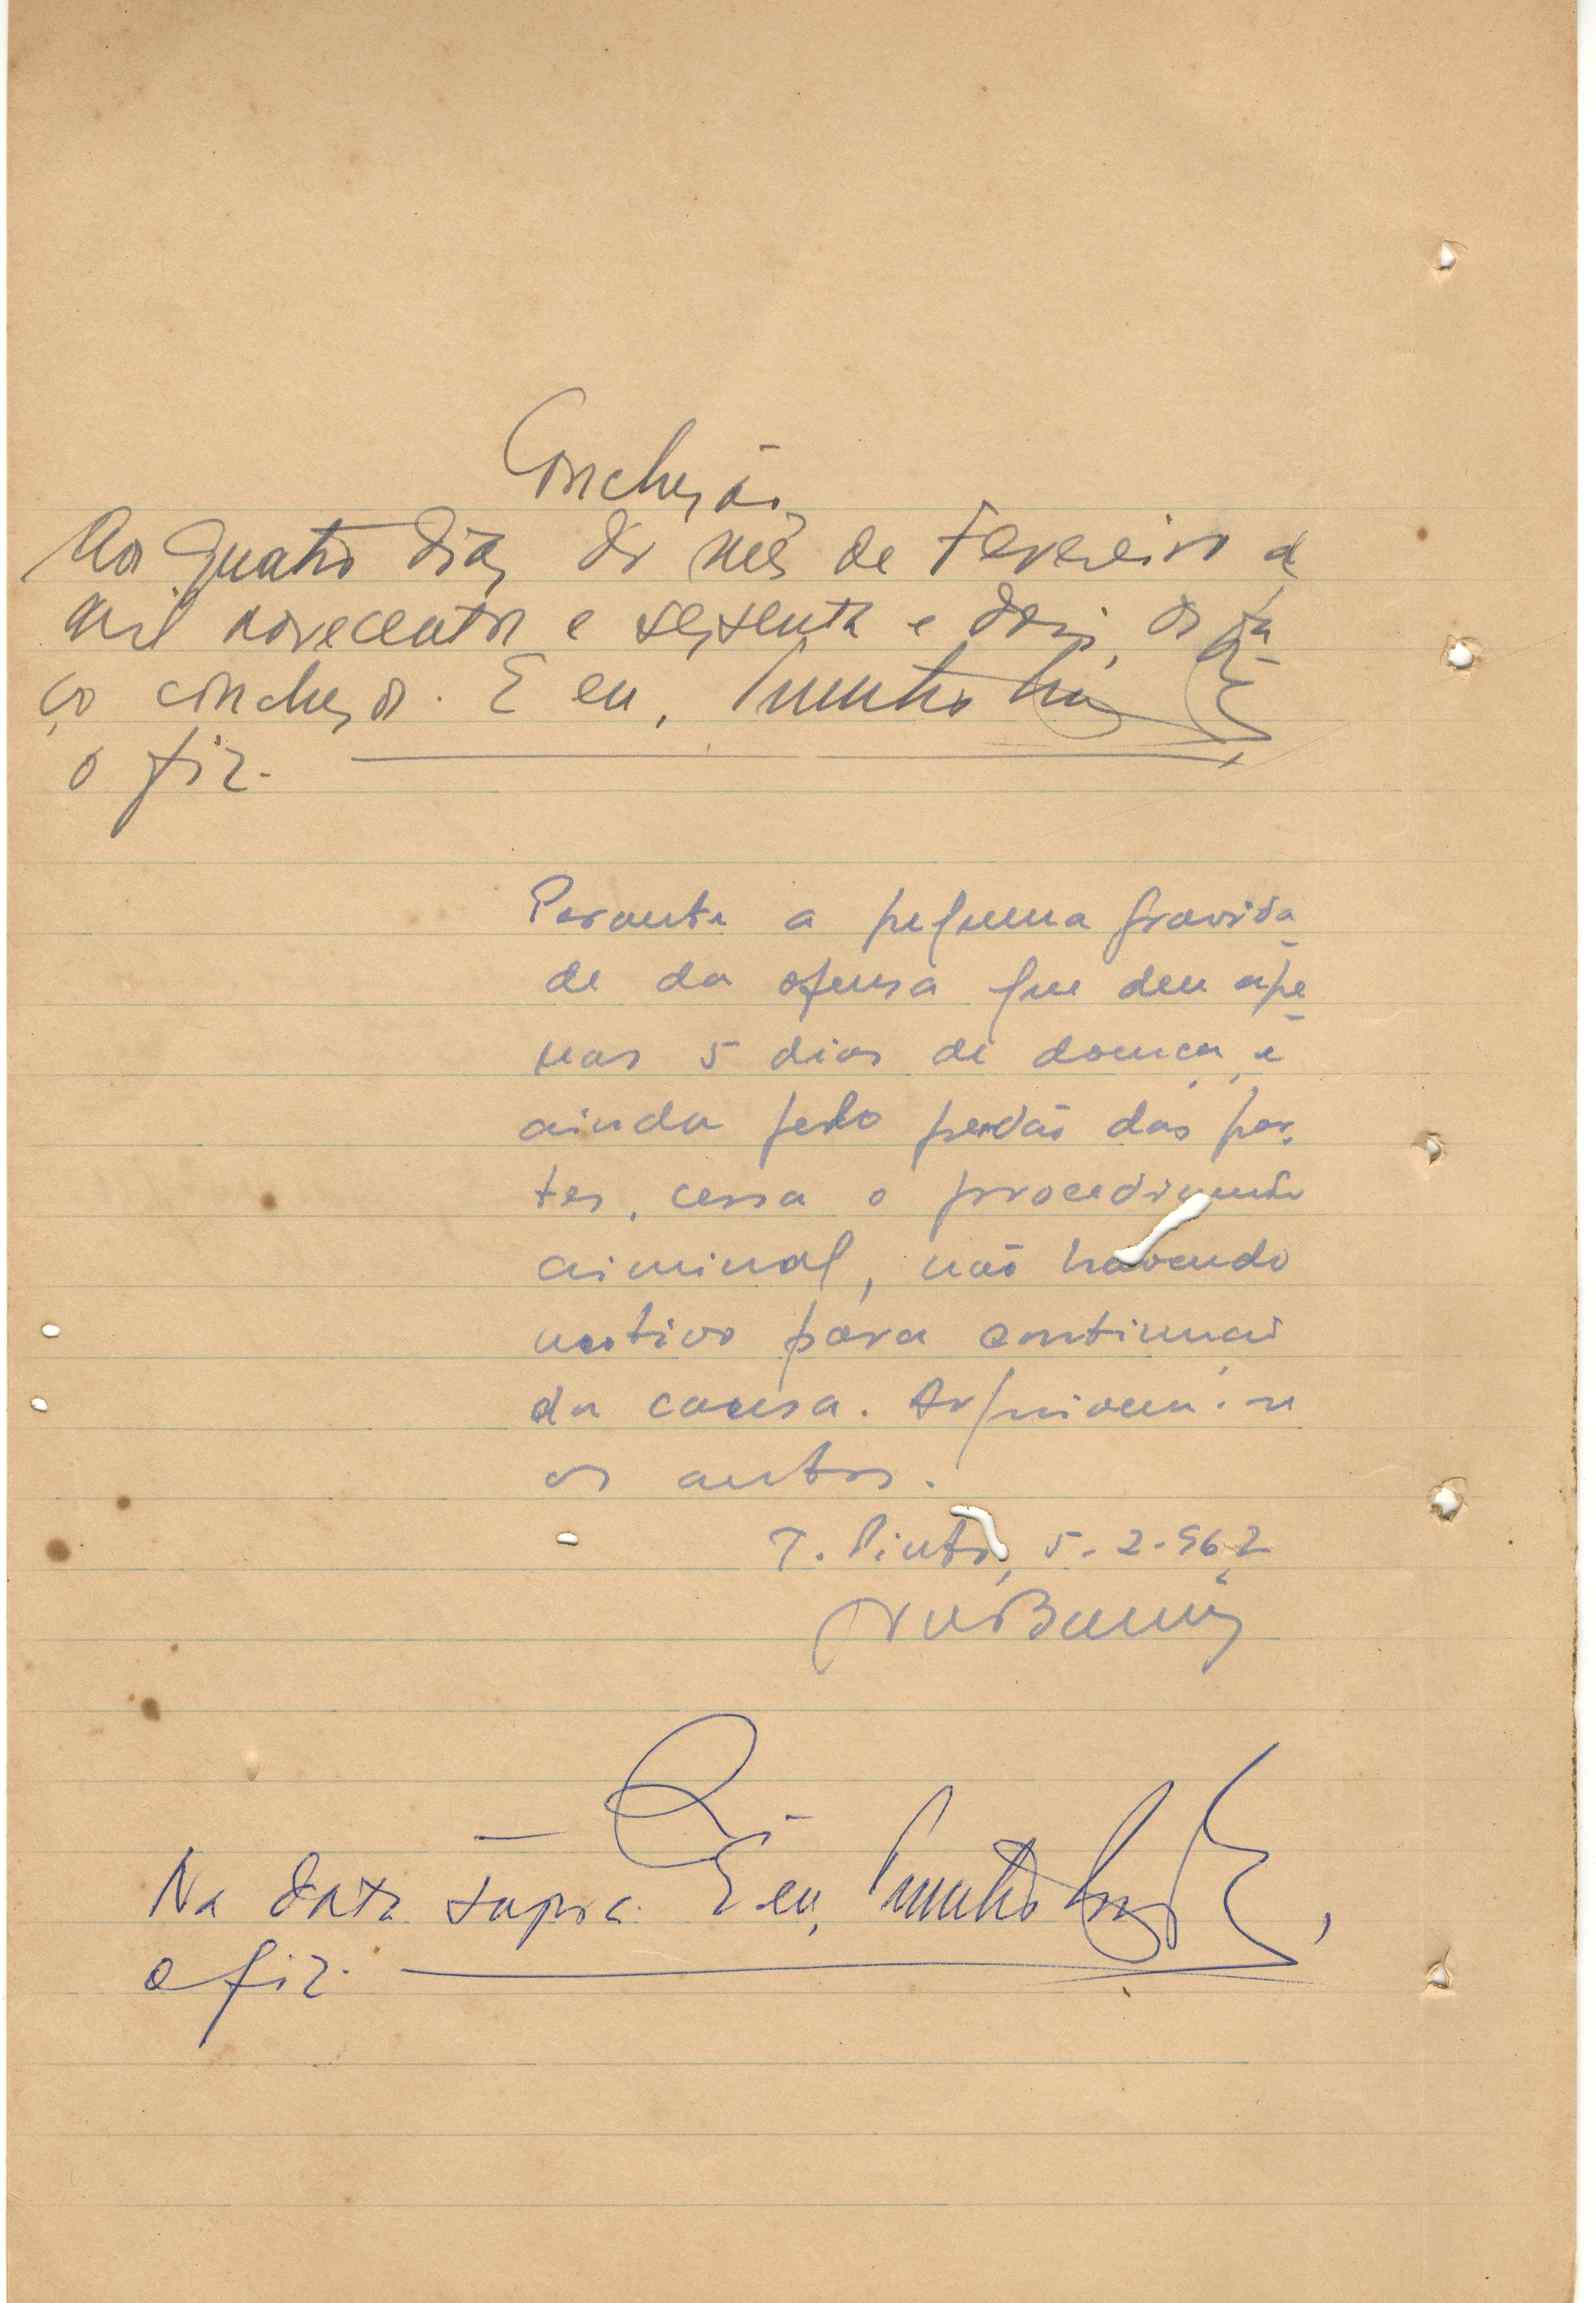 Conclusão
Aos quatro dias do mês de Fevereiro de
mil novecentos e sessenta e dois, os fa
ço conclusos. E eu,
o fiz.
Perante a pequena gravida
de da ofensa que deu ape
nas 5 dias de doença, e
ainda pelo perdão das par-
tes, cessa o procedimento
criminal, não havendo
motivo para continuar
da causa. Arquivem-se
os autos.
T. Pinto, 5-2-962
Na data supra. E eu,
o fiz.